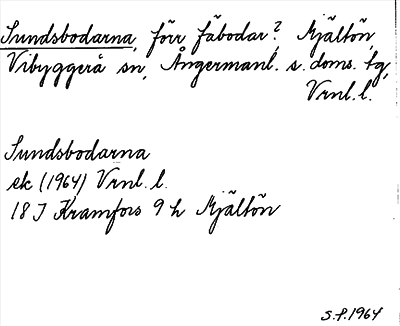 Sundsbodarna, förr fäbodar?, Mjältön,
Vibyggerå sn, Ångermanl. s. doms. tg,
Vrnl. l.
Sundsbodarna
ek (1964) Vrnl. l.
18 J Kramfors 9 h Mjältön
S.F. 1964